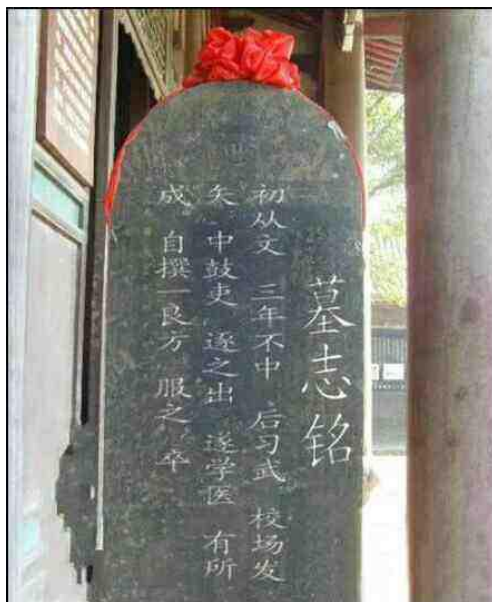 墓志铭
初从文 三年不中 后习武 校场发
矢 中鼓吏 逐之出 遂学医 有所
成 自撰一良方 服之 卒